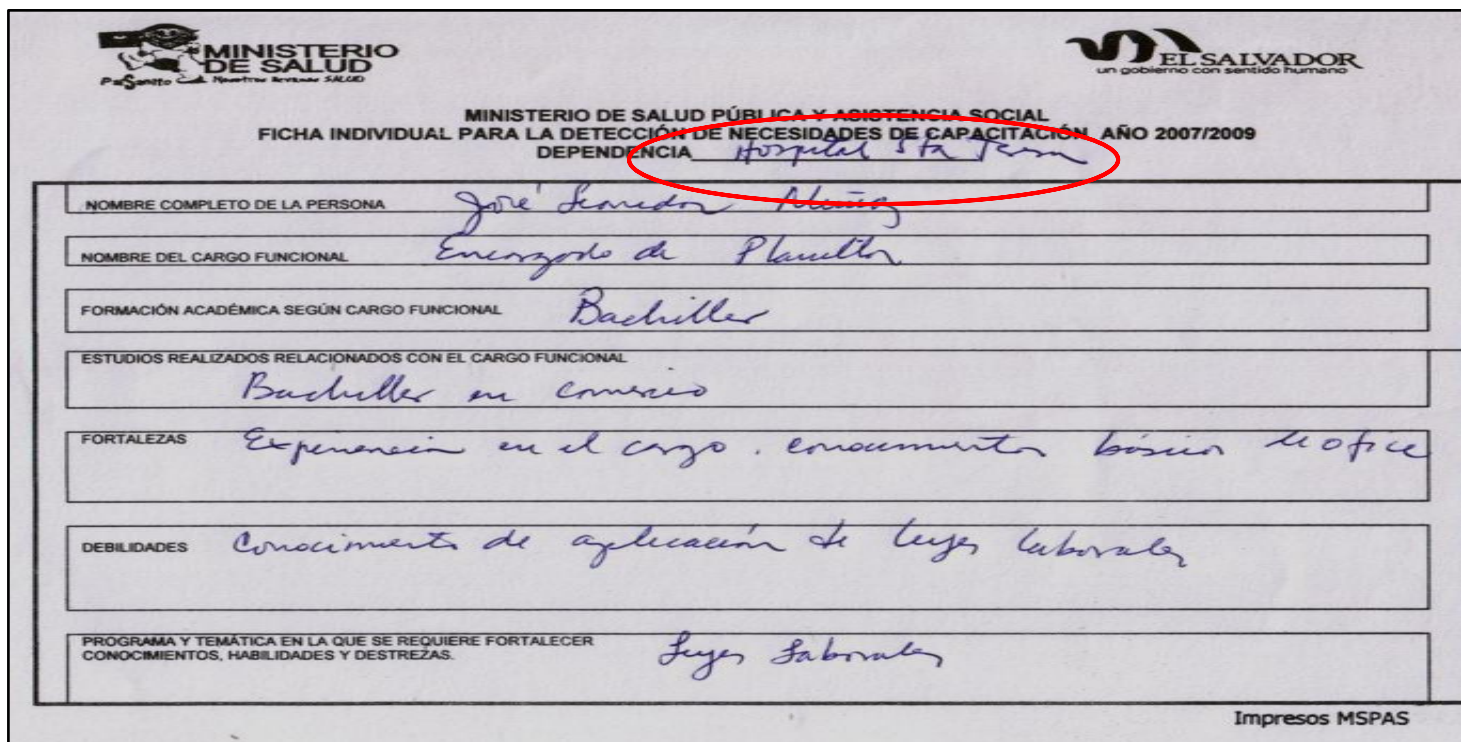 MINISTERIO
DE SALUD
EL SALVADOR
un gobierno con sentido humano
MINISTERIO DE SALUD PÚBLICA Y ASISTENCIA SOCIAL
FICHA INDIVIDUAL PARA LA DETECCIÓN DE NECESIDADES DE CAPACITACIÓN AÑO 2007/2009
DEPENDENCIA Hospital Sta Teresa
NOMBRE COMPLETO DE LA PERSONA José Muñoz
NOMBRE DEL CARGO FUNCIONAL Encargado de Planillas
FORMACIÓN ACADÉMICA SEGÚN CARGO FUNCIONAL Bachiller
ESTUDIOS REALIZADOS RELACIONADOS CON EL CARGO FUNCIONAL
Bachiller en comercio
FORTALEZAS Experiencia en el cargo. conocimientos básicos office
DEBILIDADES Conocimiento de aplicación de leyes laborales
PROGRAMA Y TEMÁTICA EN LA QUE SE REQUIERE FORTALECER
CONOCIMIENTOS, HABILIDADES Y DESTREZAS. Leyes Laborales
Impresos MSPAS